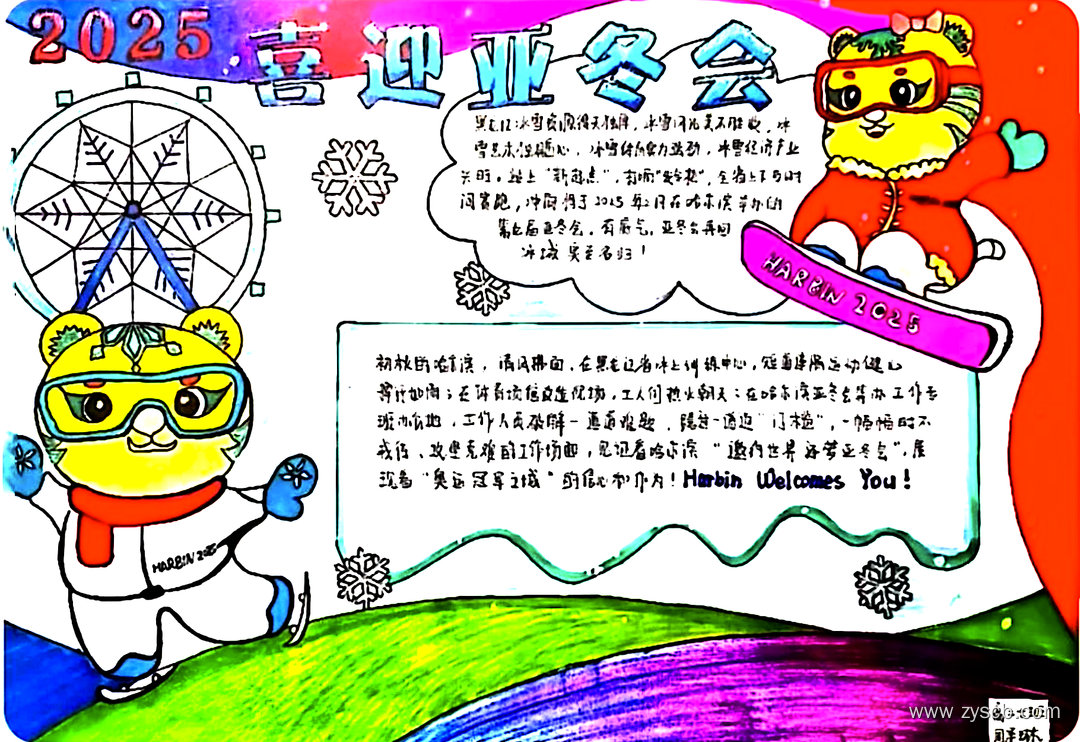 2025
喜迎亚冬会
黑龙江冰雪资源得天独厚，冰雪河北美不胜收，冰
雪艺术独随心，冰雪体育力强劲，冰雪经济产业
兴旺，踏上"新起点"，有的"安全数"，全省上下与时
间赛跑，冲刺将于2025年2月在哈尔滨举办的
第九届亚冬会，有底气，亚冬会再回
冰城 实至名归！
HARBIN 2025
初秋的哈尔滨，清风拂面，在黑龙江省冰上训练中心，短道速滑运动健儿
在体育场馆改造现场，工人们热火朝天；在哈尔滨亚冬会筹办工作专
班办公地，工作人员破解一道道难题，跨过一道道"门槛"，一幅幅时不
我待、攻坚克难的工作场面，见证着哈尔滨"邀约世界 逐梦亚冬会"，展
现着"奥运冠军之城"的信心和作为！Harbin Welcomes You！
HARBIN 2025
www.zyscb.com